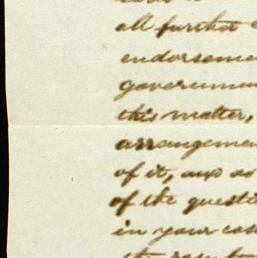 all further
endorseme
governmen
this matter,
arrangemen
of it, and so
of the questi
in your cas